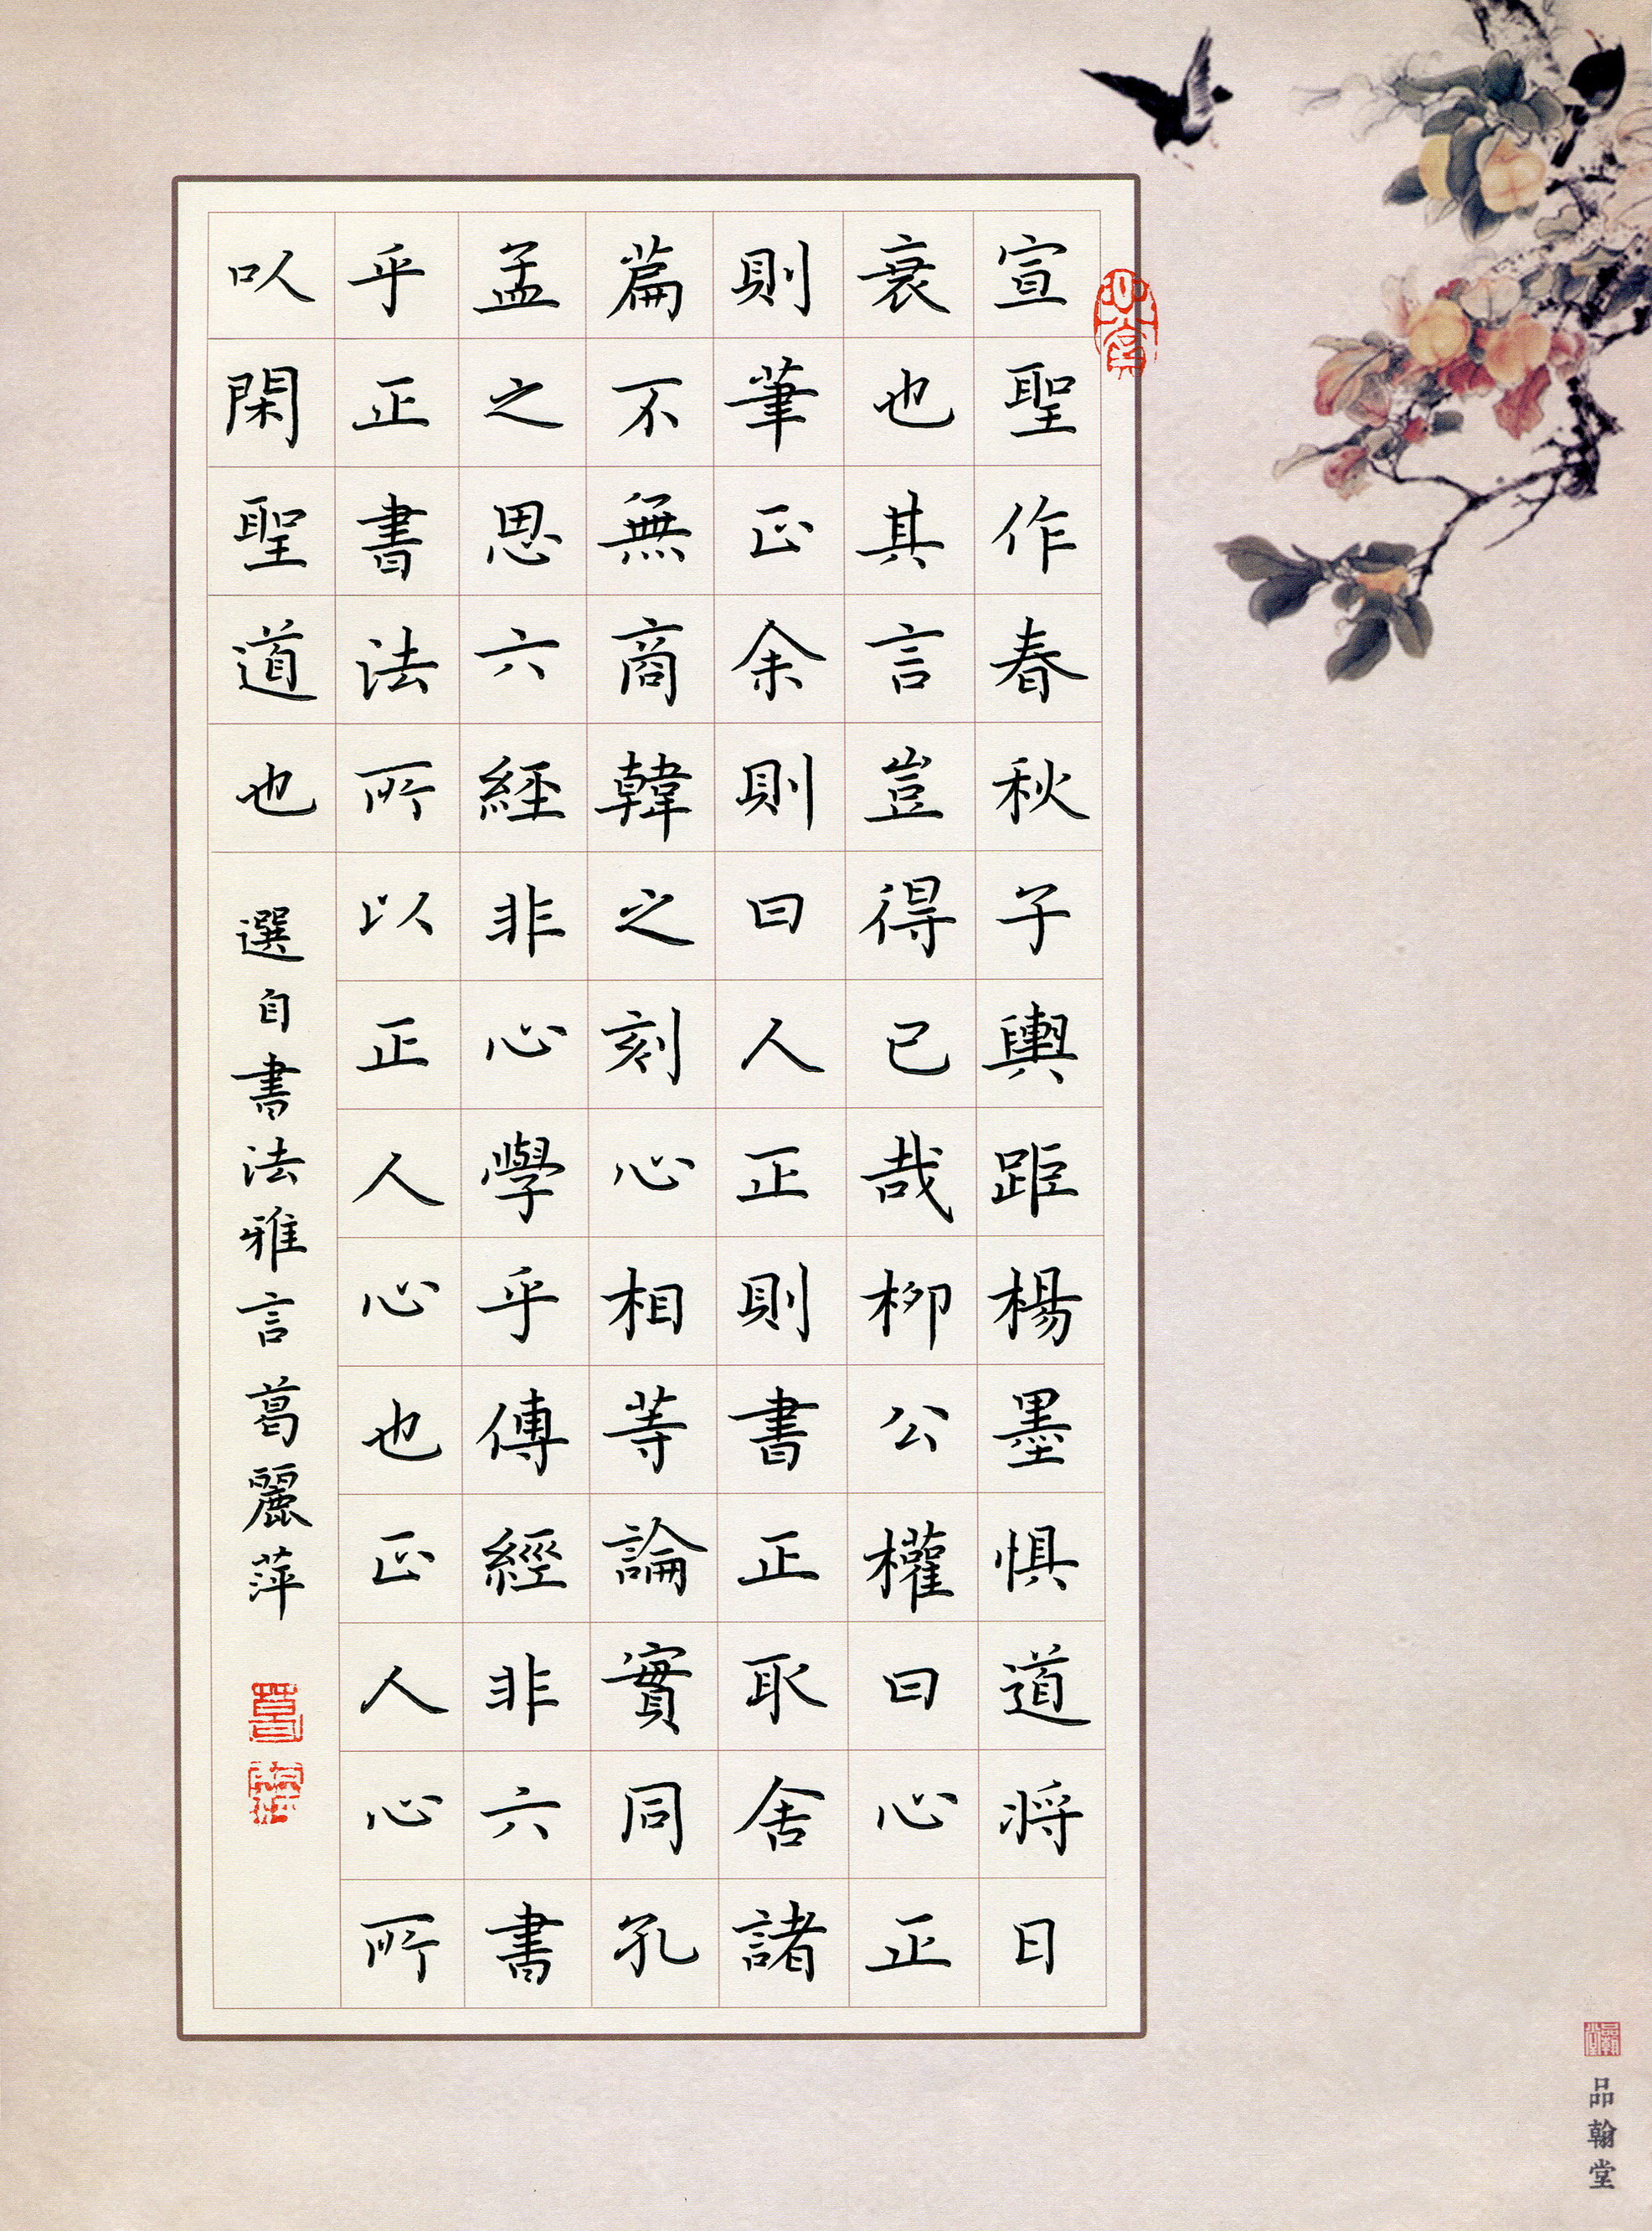 宣聖作春秋子輿距楊墨懼道将日
衰也其言豈得已哉柳公權曰心正
則筆正余則曰人正則書正取舍諸
篇不無商韓之刻心相等論實同孔
孟之思六經非心學乎傳經非六書
乎正書法所以正人心也正人心所
以閑聖道也 選自書法雅言葛麗萍
品翰堂